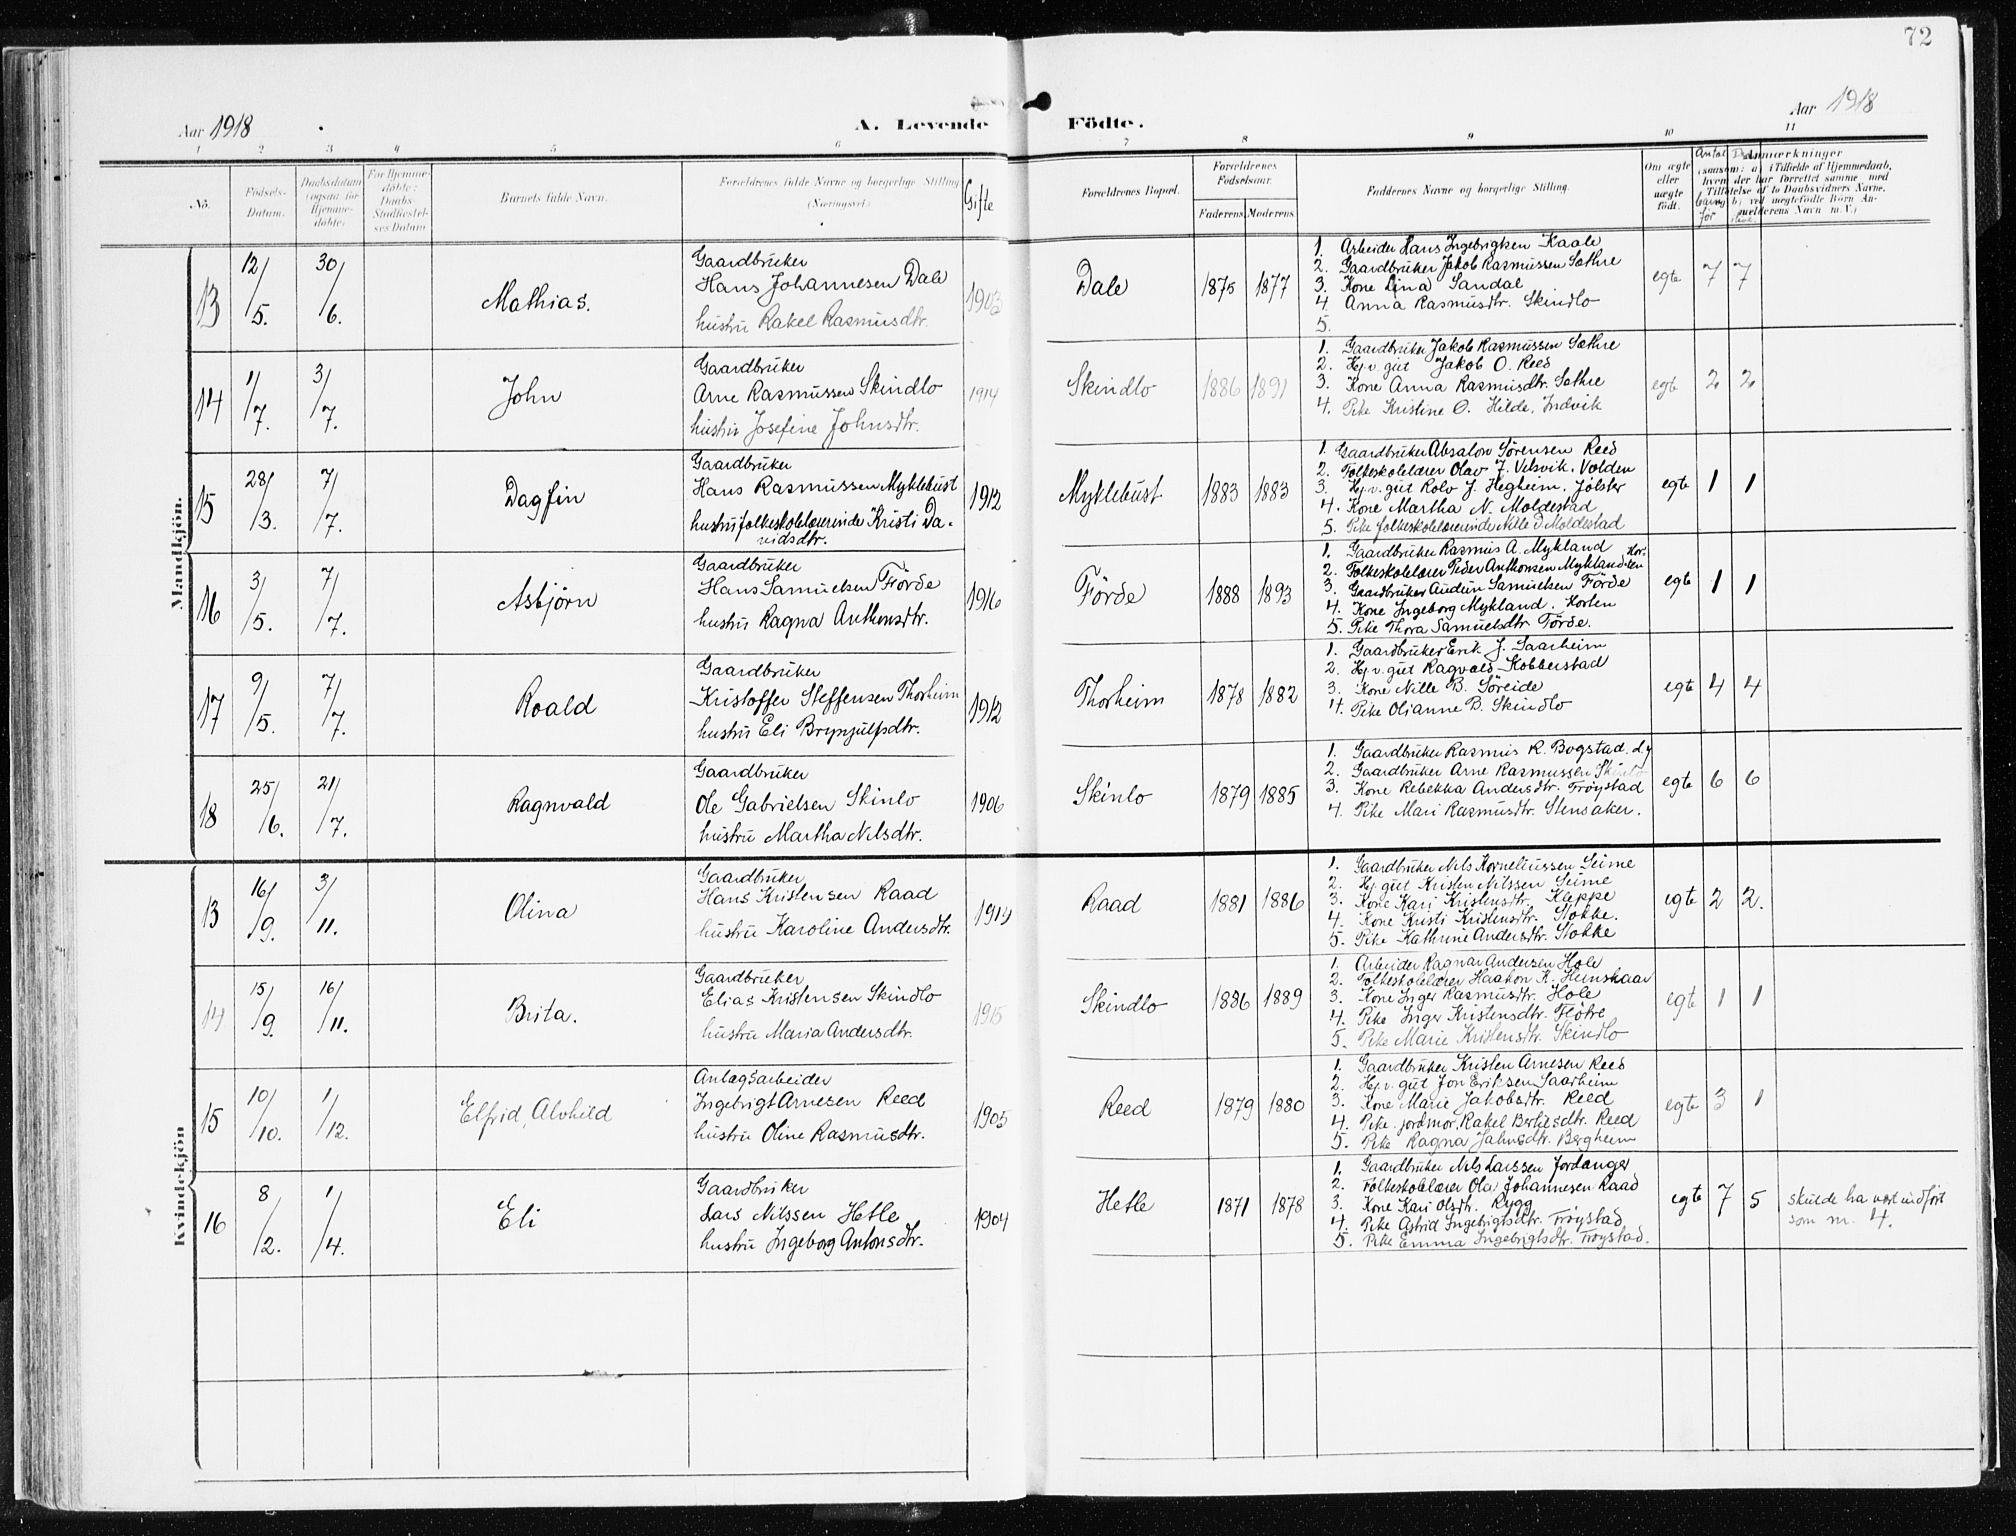 72
Aar 1918
A. Levende Födte.
Aar 1918
1 2 3 4 5 6 7 8 9 10 11
No.
Födsels-Datum.
Daabsdatum (ogsaa for Hjemmedöbte).
For Hjemmedöbte: Daabs-Stadfæstelses Datum
Barnets fulde Navn.
Forældrenes fulde Navne og borgerlige Stilling (Næringsvei.)
Gifte
Forældrenes Bopæl.
Forældrenes Födselsaar.
Faderens. Moderens.
Faddernes Navne og borgerlige Stilling.
Om ægte eller uægte födt.
Antal
Anmærkninger
Mandkjön.
13 12/5. 30/6. Mathias.
Gaardbruker
Hans Johannesen Dale
hustru Rakel Rasmusdtr.
1903 Dale 1875 1877
1. Arbeider Hans Ingebrigtsen Kaale
2. Gaardbruker Jakob Rasmussen Sæthre
3. Kone Lina Sandal
4. Anna Rasmusdtr. Skindlo
5.
egte 7 7
14 1/7. 3/7. John
Gaardbruker
Arne Rasmussen Skindlo
hustru Josefine Johnsdtr.
1914 Skindlo 1886 1891
1. Gaardbruker Jakob Rasmussen Sæthre
2. Hj.v. gut Jakob O. Reed
3. Kone Anna Rasmusdtr. Sæthre
4. Pike Kristine O. Hilde, Indvik
egte 2 2
15 28/3. 7/7. Dagfin
Gaardbruker
Hans Rasmussen Myklebust
hustru folkeskolelærerinde Kristi Da-
vidsdtr.
1912 Myklebust 1883 1883
1. Gaardbruker Absalon Sørensen Reed
2. Folkeskolelærer Olav J. Velsvik, Volden
3. Hj.v. gut Rolv J. Hegheim, Jølster
4. Kone Martha N. Moldestad
5. Pike folkeskolelærerinde Nille D. Moldestad
egte 1 1
16 3/5. 7/7. Asbjørn
Gaardbruker
Hans Samuelsen Förde
hustru Ragna Anthonsdtr.
1916 Förde 1888 1893
1. Gaardbruker Rasmus A. Mykland
2. Folkeskolelærer Peder Anthonsen Mykland
3. Gaardbruker Audun Samuelsen Förde
4. Kone Ingeborg Mykland. Horten
5. Pike Thora Samuelsdtr Förde.
egte 1 1
17 9/5. 7/7. Roald
Gaardbruker
Kristoffer Steffensen Thorheim
hustru Eli Brynjulfsdtr.
1912 Thorheim 1878 1882
1. Gaardbruker Erik J. Saarheim
2. Hj.v. gut Ragvald Kobberstad
3. Kone Nille B. Søreide
4. Pike Olianne B. Skindlo
egte 4 4
18 25/6. 21/7. Ragnvald
Gaardbruker
Ole Gabrielsen Skinlo
hustru Martha Nilsdtr.
1906 Skinlo 1879 1885
1. Gaardbruker Rasmus R. Bogstad.
2. Gaardbruker Arne Rasmussen Skinlo
3. Kone Rebekka Andersdtr. Frøystad
4. Pike Mari Rasmusdtr. Stensaker.
egte 6 6
Kvindekjön
13 16/9. 3/11. Olina
Gaardbruker
Hans Kristensen Raad
hustru Karoline Andersdtr.
1914 Raad 1881 1886
1. Gaardbruker Nils Korneliussen Seime
2. Hj. gut Kristen Nilssen Seime
3. Kone Kari Kristensdtr. Kleppe
4. Kone Kristi Kristensdtr. Stokke.
5. Pike Kathrine Andersdtr. Stokke
egte 2 2.
14 15/9. 16/11. Brita.
Gaardbruker
Elias Kristensen Skindlo
hustru Maria Andersdtr.
1915 Skindlo 1886 1889
1. Arbeider Ragnar Andersen Hole
2. Folkeskolelærer Haakon K. Heinskaar
3. Kone Inger Rasmusdtr. Hole
4. Pike Inger Kristensdtr. Fløtre
5. Pike Marie Kristensdtr. Skindlo
egte 1 1
15 10/10. 1/12. Elfrid, Alvhild
Anlægsarbeider
Ingebrigt Arnesen Reed
hustru Oline Rasmusdtr.
1905 Reed 1879 1880
1. Gaardbruker Kristen Arnesen Reed
2. Hj.v. gut Jon Eriksen Saarheim
3. Kone Marie Jakobsdtr. Reed
4. Pike jordmor, Rakel Bertelsdtr. Reed
5. Pike Ragna Jahnsdtr. Bergheim
egte 3 1
16 8/2. 1/4. Eli
Gaardbruker
Lars Nilssen Hetle
hustru Ingeborg Antonsdtr.
1904 Hetle 1871 1878
1. Gaardbruker Nils Larssen Fordanger
2. Folkeskolelærer Ola Johannesen Raad
3. Kone Kari Olsdtr. Rygg
4. Pike Astrid Ingebrigtsdtr. Frøystad
5. Pike Emma Ingebrigtsdtr. Frøystad.
egte 7 5
skulde ha vært indført
som nr. 4.